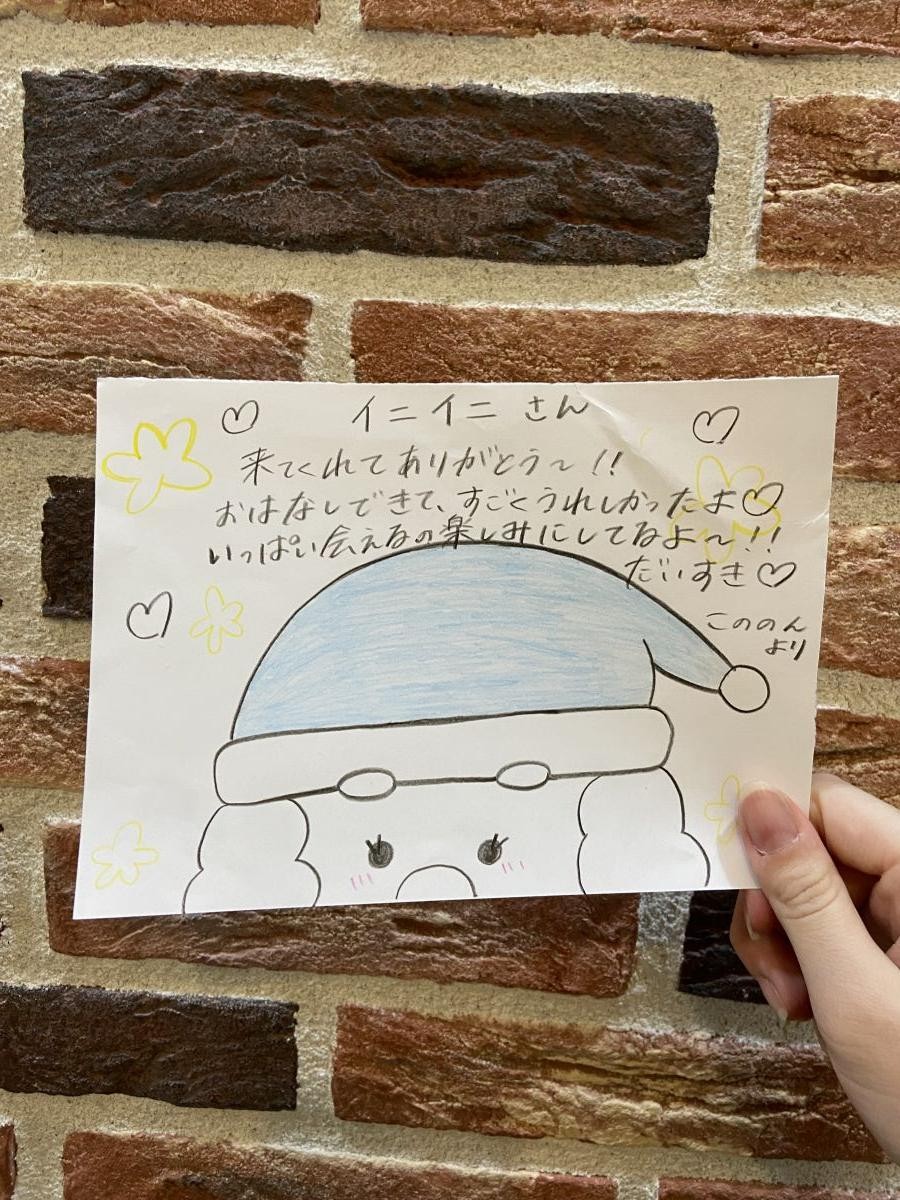 イニイニ さん
来てくれてありがとう〜!!
おはなしできて、すごくうれしかったよ♡
いっぱい会えるの楽しみにしてるよ〜!!
だいすき♡
こののん
より